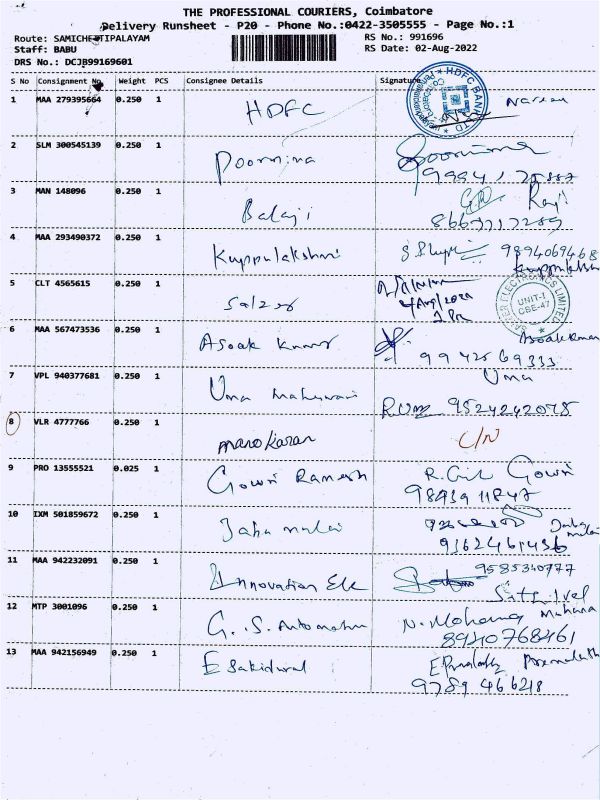 THE PROFESSIONAL COURIERS, Coimbatore
Delivery Runsheet - P20 - Phone No.:0422-3505555 - Page No.:1
Route: SAMICHETTIPALAYAM
RS No.: 991696
Staff: BABU
RS Date: 02-Aug-2022
DRS No.: DCJB99169601
S No Consignment No. Weight PCS Consignee Details Signature
HDFC BANK LTD
1 MAA 279395664 0.250 1 HDFC Naresh
2 SLM 300545139 0.250 1 Poornima Poornima
3 MAN 148096 0.250 1 Balaji Raji
8667717289
4 MAA 293490372 0.250 1 Kuppulakshmi 9894069468
Kuppulakshmi
5 CLT 4565615 0.250 1 Salzer
SALZER ELECTRONICS LIMITED
UNIT-1
CBE-47
6 MAA 567473536 0.250 1 Asoak Kumar Asoak Kumar
9942569333
7 VPL 940377681 0.250 1 Uma maheswari Uma
R.Uma 9524242078
8 VLR 4777766 0.250 1 manokaran C/N
9 PRO 13555521 0.025 1 Gowri Ramesh Gowri
9893911847
10 IXM 501859672 0.250 1
9362461436
11 MAA 942232091 0.250 1 Innovation Ele 9585340777
12 MTP 3001096 0.250 1 G.S. Automation N. Mohana Mohana
8940768461
13 MAA 942156949 0.250 1 Esakidurai